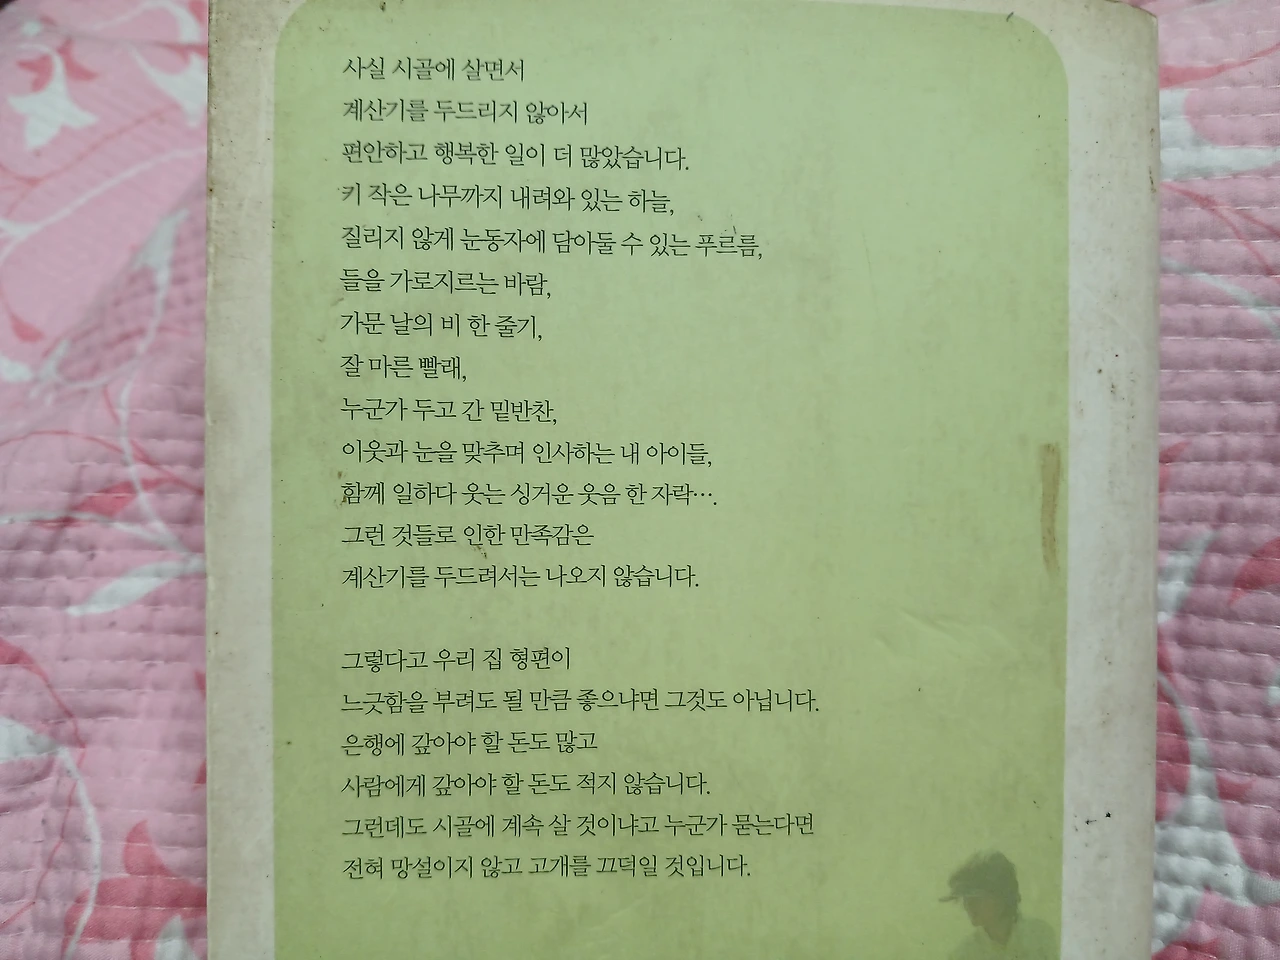 사실 시골에 살면서
계산기를 두드리지 않아서
편안하고 행복한 일이 더 많았습니다.
키 작은 나무까지 내려와 있는 하늘,
질리지 않게 눈동자에 담아둘 수 있는 푸르름,
들을 가로지르는 바람,
가문 날의 비 한 줄기,
잘 마른 빨래,
누군가 두고 간 밑반찬,
이웃과 눈을 맞추며 인사하는 내 아이들,
함께 일하다 웃는 싱거운 웃음 한 자락….
그런 것들로 인한 만족감은
계산기를 두드려서는 나오지 않습니다.
그렇다고 우리 집 형편이
느긋함을 부려도 될 만큼 좋으냐면 그것도 아닙니다.
은행에 갚아야 할 돈도 많고
사람에게 갚아야 할 돈도 적지 않습니다.
그런데도 시골에 계속 살 것이냐고 누군가 묻는다면
전혀 망설이지 않고 고개를 끄덕일 것입니다.